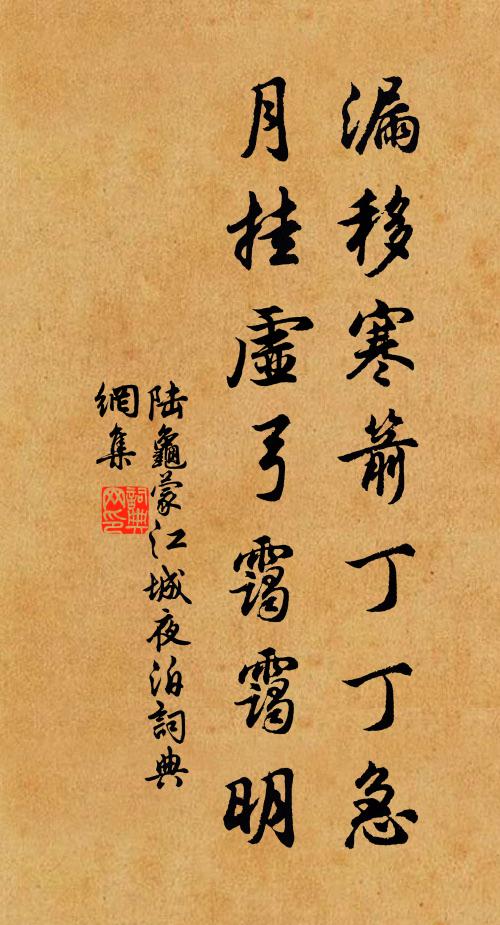 漏移寒箭丁丁急
月挂虛弓靄靄明
陆龜蒙江城夜泊詞典
網集
詞典
网印